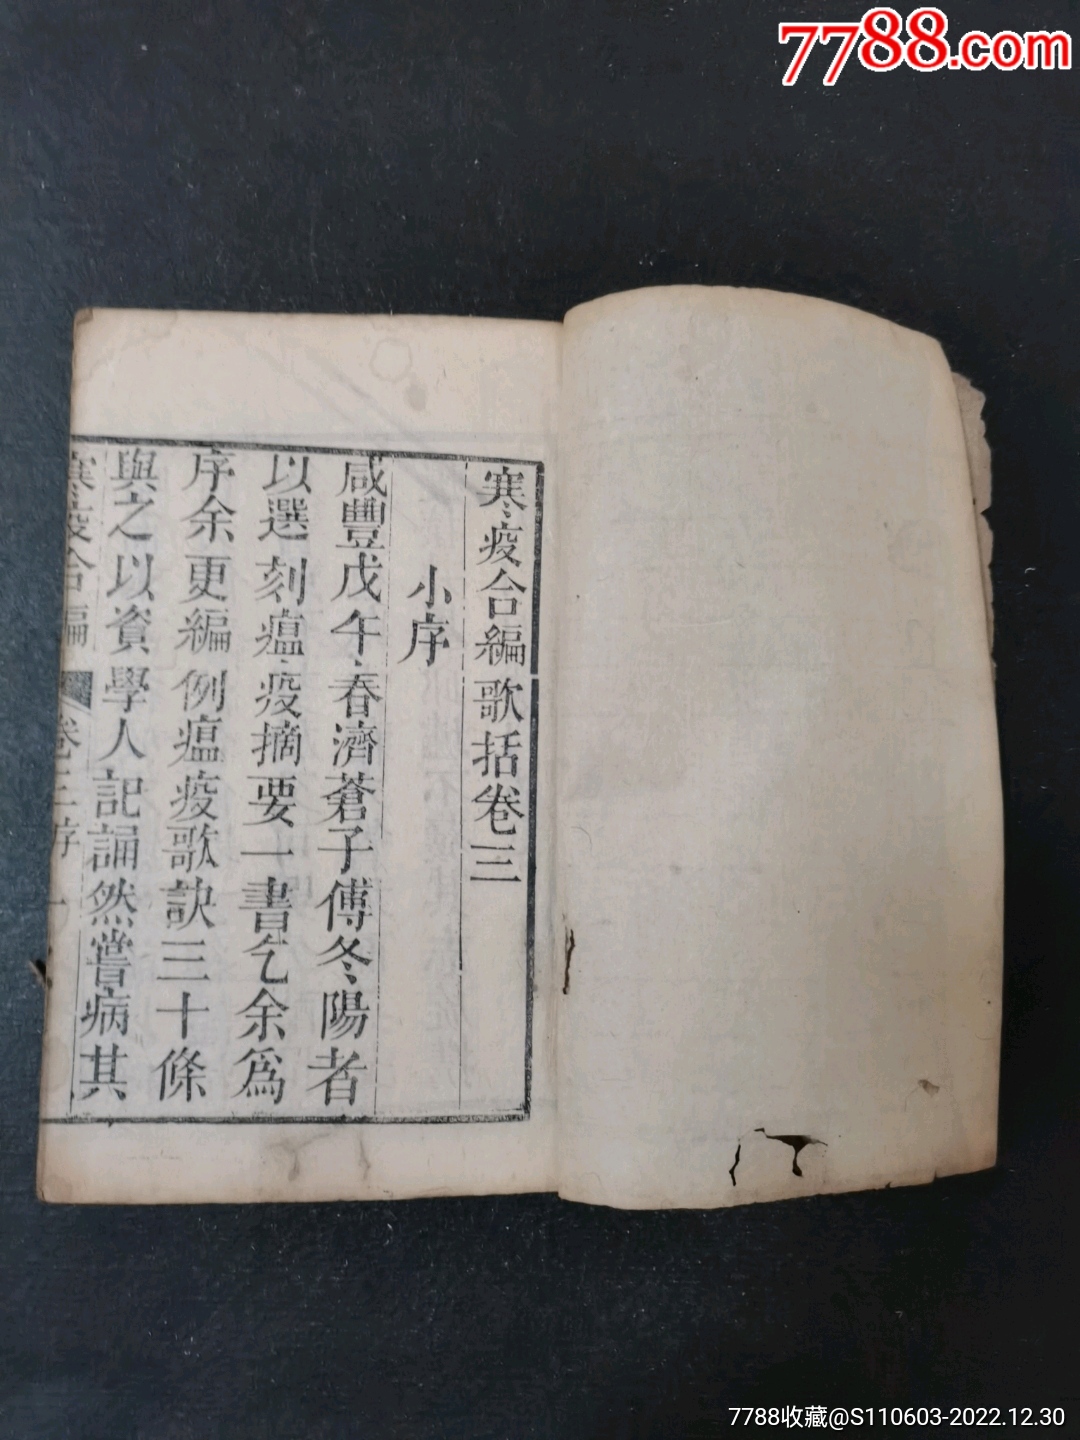 7788.com
寒疫合編歌括卷三
小序
咸豐戊午春濟蒼子傅冬陽者
以選刻瘟疫摘要一書乞余爲
序余更編例瘟疫歌訣三十條
與之以資學人記誦然嘗病其
寒疫合編 卷三序 一
7788收藏@S110603-2022.12.30